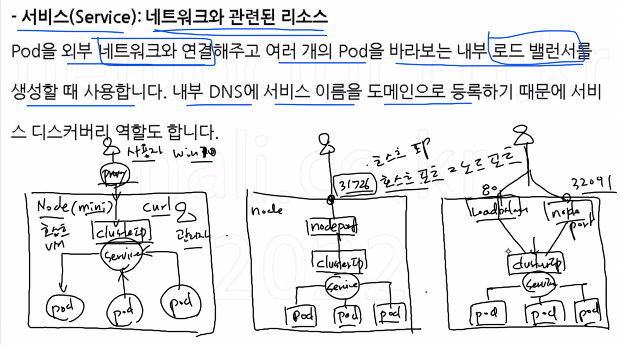 - 서비스(Service): 네트워크와 관련된 리소스
Pod을 외부 네트워크와 연결해주고 여러 개의 Pod을 바라보는 내부 로드 밸런서를
생성할 때 사용합니다. 내부 DNS에 서비스 이름을 도메인으로 등록하기 때문에 서비
스 디스커버리 역할도 합니다.
사용자 win10
proxy
Node(mini) curl
호스트 VM
clusterIp
관리자
service
pod pod pod
호스트 IP
31726 호스트 포트 = 노드 포트
node
nodeport
clusterIp
service
pod pod pod
80 32091
Loadbalancer node port
clusterIp
service
pod pod pod